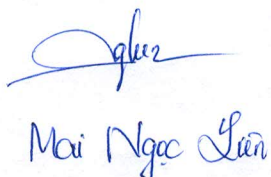 Mai Ngọc Liên